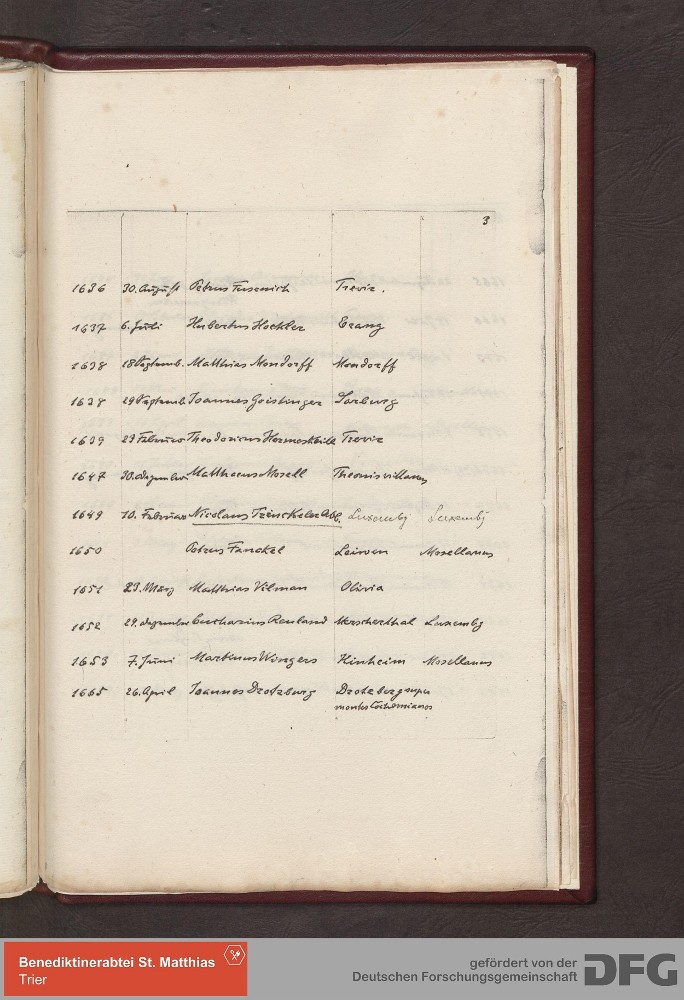 3
1636 30. August Petrus Fusenich Trevir.
1637 6. Juli Hubertus Hockler Erang
1638 18 Septemb. Matthias Mondorff Mondorff
1638 29 Septemb. Joannes Geistinger Sarburg
1639 27 Februar Theodoricus Trevir
1647 30. Dezember Mattheus Mosell Theonisvillanus
1649 10. Februar Nicolaus Trinckeler Abb. Luxemby Luxemby
1650 Petrus Fanckel Leiwen Mosellanus
1651 23. März Matthias Vilman Olivia
1652 29. Dezember Eucharius Renland Merscherthal Luxemby
1653 7. Juni Martinus Wingers Kinheim Mosellanus
1665 26. April Joannes Drotzburg Drotzberg supra
montes Cochemianos
Benediktinerabtei St. Matthias
Trier
gefördert von der
Deutschen Forschungsgemeinschaft DFG